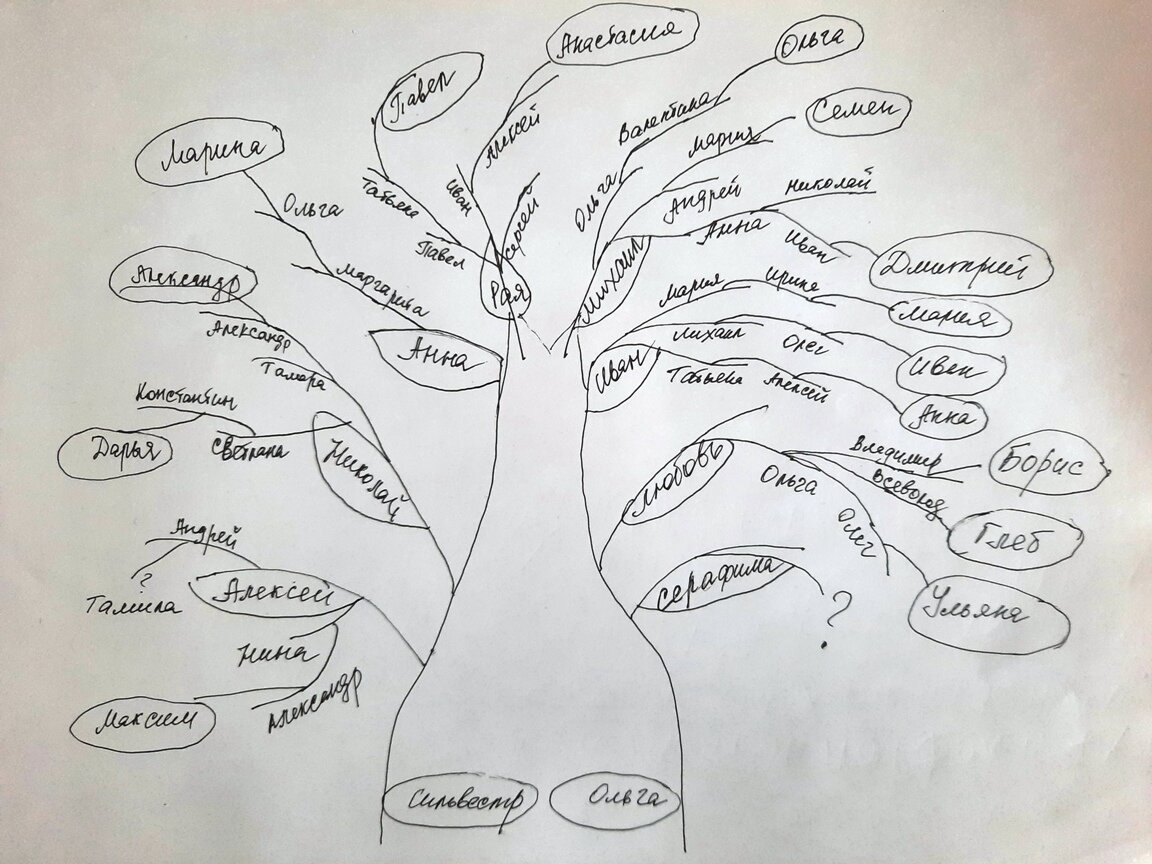 Анастасия
Ольга
Павел
Семен
Марина
Валентина
Алексей
Мария
Татьяна
Иван
Ольга
Андрей
Николай
Ольга
Сергей
Анна
Иван
Павел
Дмитрий
Маргарита
Рая
Михаил
Мария
Ирина
Мария
Александр
Александр
Анна
Иван
Михаил
Олег
Иван
Тамара
Татьяна
Алексей
Анна
Константин
Дарья
Светлана
Николай
Любовь
Ольга
Владимир
Борис
Всеволод
Глеб
Андрей
Олег
?
Тамила
Алексей
Серафима
?
Ульяна
Нина
Александр
Максим
Сильвестр
Ольга